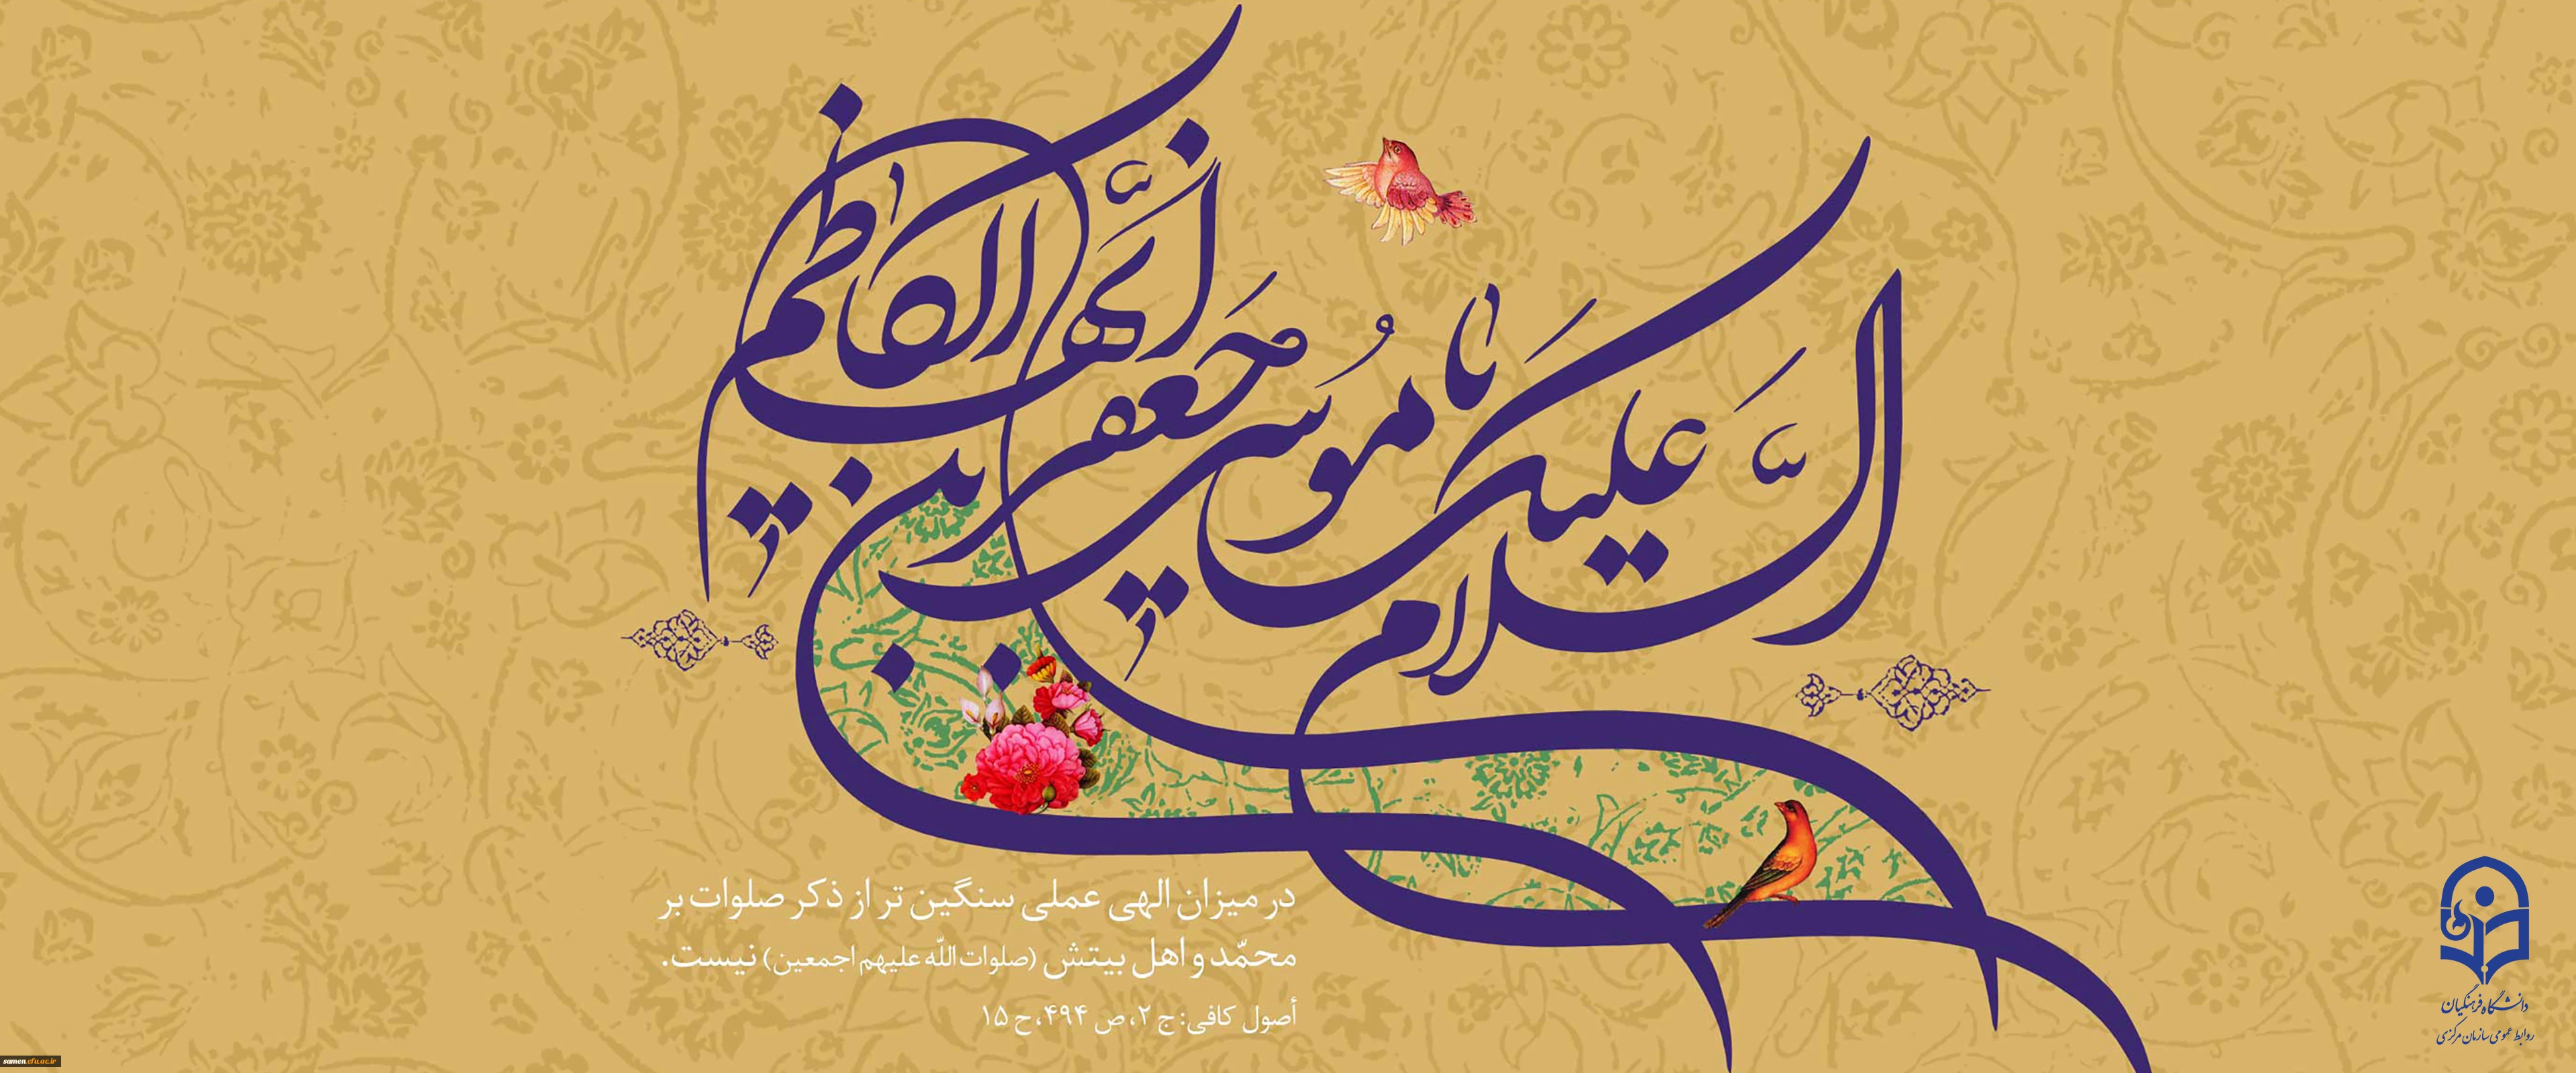 السَّلام علیکَ یا مُوسی بن جعفرَ أیُّهَا الکاظم
در میزان الهی عملی سنگین تر از ذکر صلوات بر
محمّد و اهل بیتش (صلوات اللّه علیهم اجمعین) نیست.
أصول کافی: ج ۲، ص ۴۹۴، ح ۱۵
دانشگاه فرهنگیان
روابط عمومی سازمان مرکزی
samen.cfu.ac.ir